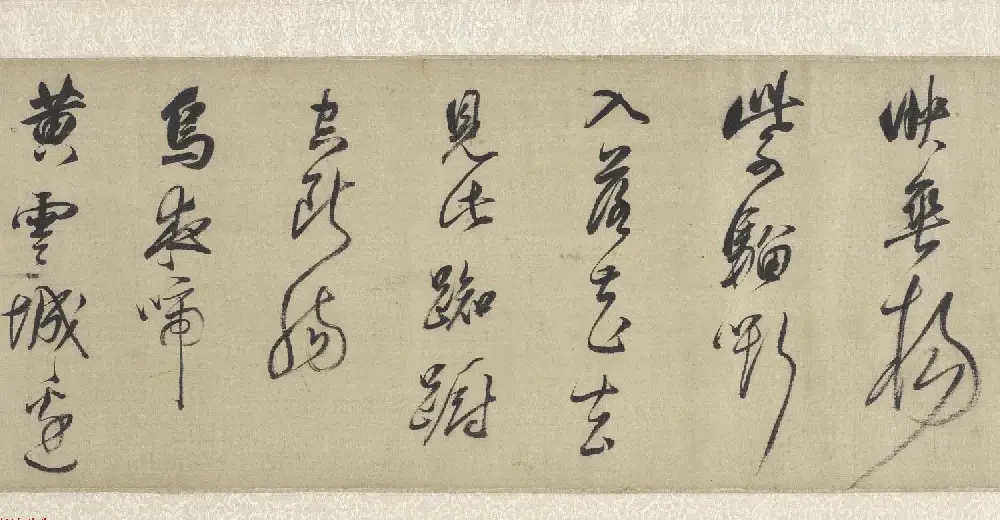 映垂楊
紫騮嘶
入落花去
見此踟躕
空斷腸
烏夜啼
黃雲城邊